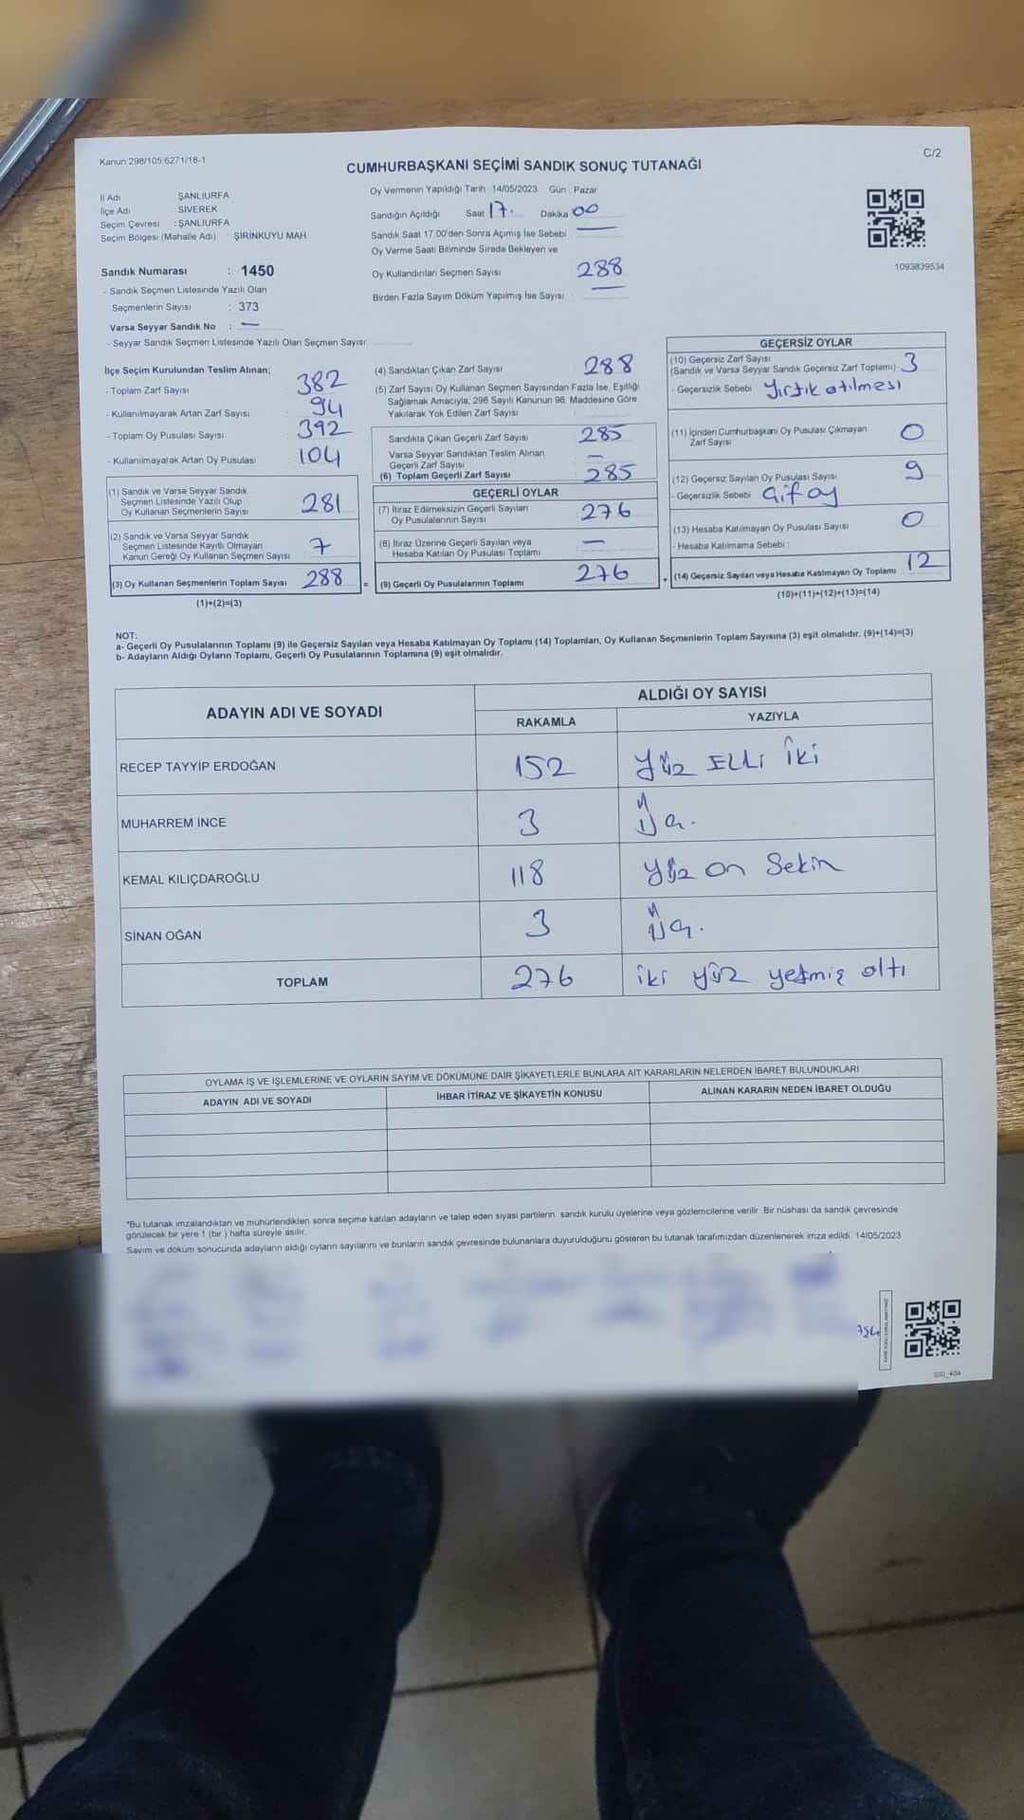 Kanun 298/105,6271/18-1
C/2
CUMHURBAŞKANI SEÇİMİ SANDIK SONUÇ TUTANAĞI
İl Adı ŞANLIURFA
İlçe Adı SİVEREK
Seçim Çevresi : ŞANLIURFA
Seçim Bölgesi (Mahalle Adı) ŞİRİNKUYU MAH.
Sandık Numarası : 1450
- Sandık Seçmen Listesinde Yazılı Olan
Seçmenlerin Sayısı : 373
Varsa Seyyar Sandık No : —
- Seyyar Sandık Seçmen Listesinde Yazılı Olan Seçmen Sayısı
Oy Vermenin Yapıldığı Tarih 14/05/2023 Gün : Pazar
Sandığın Açıldığı Saat 17. Dakika 00
Sandık Saat 17.00'den Sonra Açımış İse Sebebi —
Oy Verme Saati Bitiminde Sırada Bekleyen ve
Oy Kullandırılan Seçmen Sayısı 288
Birden Fazla Sayım Döküm Yapılmış İse Sayısı —
1093839534
İlçe Seçim Kurulundan Teslim Alınan;
- Toplam Zarf Sayısı 382
- Kullanılmayarak Artan Zarf Sayısı 94
- Toplam Oy Pusulası Sayısı 392
- Kullanılmayarak Artan Oy Pusulası 104
(1) Sandık ve Varsa Seyyar Sandık
Seçmen Listesinde Yazılı Olup
Oy Kullanan Seçmenlerin Sayısı 281
(2) Sandık ve Varsa Seyyar Sandık
Seçmen Listesinde Kayıtlı Olmayan
Kanun Gereği Oy Kullanan Seçmen Sayısı 7
(3) Oy Kullanan Seçmenlerin Toplam Sayısı 288 =
(1)+(2)=(3)
(4) Sandıktan Çıkan Zarf Sayısı 288
(5) Zarf Sayısı Oy Kullanan Seçmen Sayısından Fazla İse, Eşitliği
Sağlamak Amacıyla, 298 Sayılı Kanunun 98. Maddesine Göre
Yakılarak Yok Edilen Zarf Sayısı
Sandıkta Çıkan Geçerli Zarf Sayısı 285
Varsa Seyyar Sandıktan Teslim Alınan
Geçerli Zarf Sayısı —
(6) Toplam Geçerli Zarf Sayısı 285
GEÇERLİ OYLAR
(7) İtiraz Edilmeksizin Geçerli Sayılan
Oy Pusulalarının Sayısı 276
(8) İtiraz Üzerine Geçerli Sayılan veya
Hesaba Katılan Oy Pusulası Toplamı —
(9) Geçerli Oy Pusulalarının Toplamı 276 +
GEÇERSİZ OYLAR
(10) Geçersiz Zarf Sayısı
(Sandık ve Varsa Seyyar Sandık Geçersiz Zarf Toplamı) 3
- Geçersizlik Sebebi Yırtık atılmesı
(11) İçinden Cumhurbaşkanı Oy Pusulası Çıkmayan
Zarf Sayısı 0
(12) Geçersiz Sayılan Oy Pusulası Sayısı 9
- Geçersizlik Sebebi Çift oy
(13) Hesaba Katılmayan Oy Pusulası Sayısı 0
- Hesaba Katılmama Sebebi :
(14) Geçersiz Sayılan veya Hesaba Katılmayan Oy Toplamı 12
(10)+(11)+(12)+(13)=(14)
NOT:
a- Geçerli Oy Pusulalarının Toplamı (9) ile Geçersiz Sayılan veya Hesaba Katılmayan Oy Toplamı (14) Toplamları, Oy Kullanan Seçmenlerin Toplam Sayısına (3) eşit olmalıdır. (9)+(14)=(3)
b- Adayların Aldığı Oyların Toplamı, Geçerli Oy Pusulalarının Toplamına (9) eşit olmalıdır.
ADAYIN ADI VE SOYADI ALDIĞI OY SAYISI
RAKAMLA YAZIYLA
RECEP TAYYİP ERDOĞAN 152 Yüz Elli İki
MUHARREM İNCE 3 Üç.
KEMAL KILIÇDAROĞLU 118 Yüz on Sekin
SİNAN OĞAN 3 Üç.
TOPLAM 276 iki yüz yetmiş altı
OYLAMA İŞ VE İŞLEMLERİNE VE OYLARIN SAYIM VE DÖKÜMÜNE DAİR ŞİKAYETLERLE BUNLARA AİT KARARLARIN NELERDEN İBARET BULUNDUKLARI
ADAYIN ADI VE SOYADI İHBAR İTİRAZ VE ŞİKAYETİN KONUSU ALINAN KARARIN NEDEN İBARET OLDUĞU
*Bu tutanak imzalandıktan ve mühürlendikten sonra seçime katılan adayların ve talep eden siyasi partilerin sandık kurulu üyelerine veya gözlemcilerine verilir. Bir nüshası da sandık çevresinde
görülecek bir yere 1 (bir) hafta süreyle asılır.
Sayım ve döküm sonucunda adayların aldığı oyların sayılarını ve bunların sandık çevresinde bulunanlara duyurulduğunu gösteren bu tutanak tarafımızdan düzenlenerek imza edildi. 14/05/2023